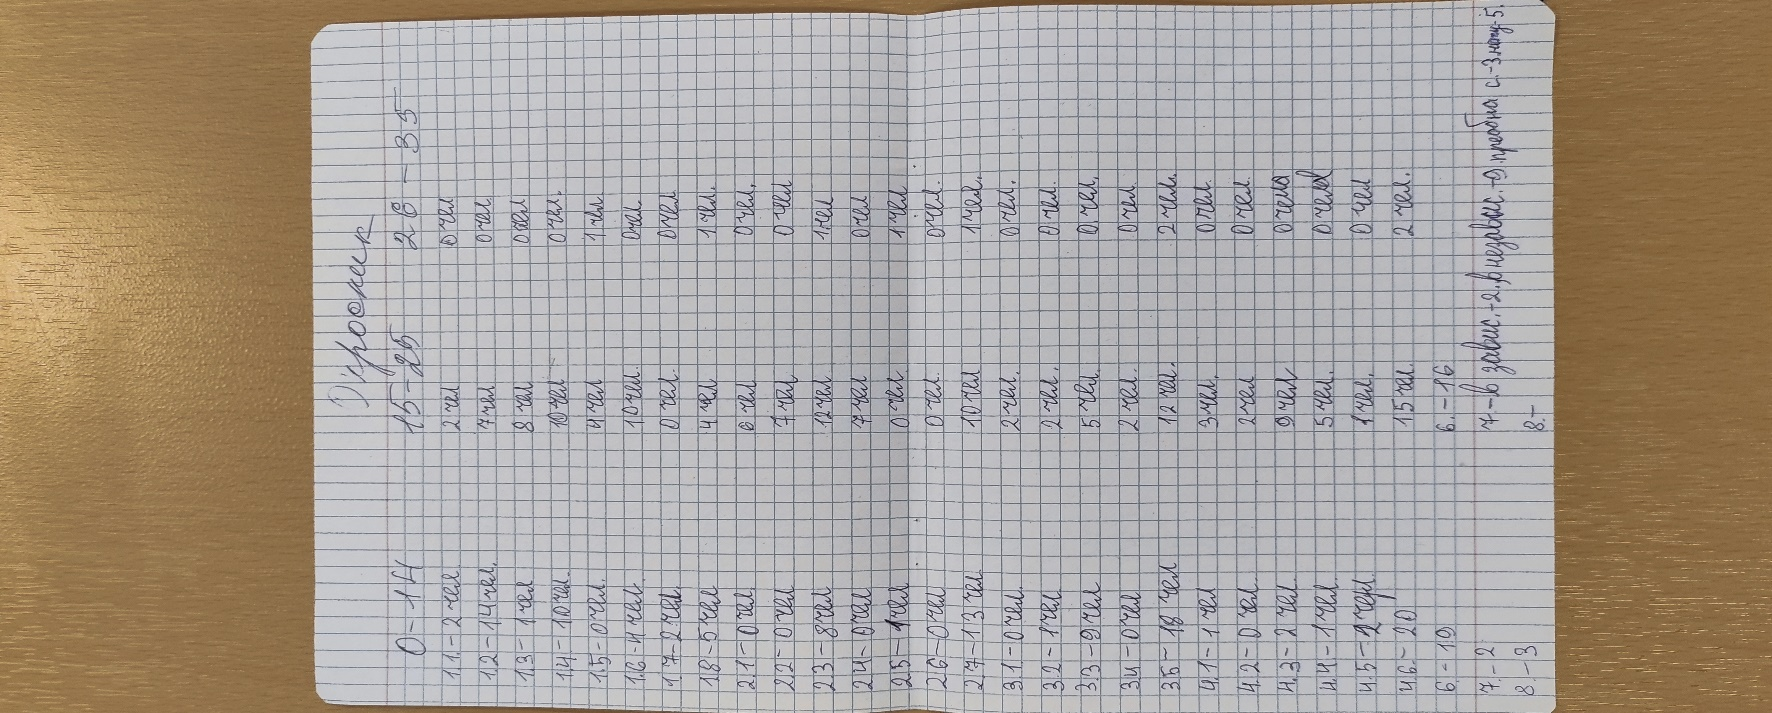 Опросник
0-14 15-25 26-35
1.1.-2 чел 2 чел 0 чел
1.2-14 чел. 7 чел 0 чел
1.3-1 чел 8 чел 0 чел
1.4-10 чел. 10 чел 0 чел.
1.5-0 чел. 4 чел 1 чел
1.6-4 чел. 10 чел. 0 чел.
1.7-2 чел. 0 чел. 0 чел
1.8-5 чел 4 чел 1 чел.
2.1-0 чел 6 чел 0 чел.
2.2-0 чел 7 чел 0 чел
2.3-8 чел 12 чел 1 чел
2.4-0 чел 7 чел 0 чел
2.5-1 чел 0 чел 1 чел
2.6-0 чел 0 чел. 0 чел.
2.7-13 чел 10 чел 1 чел.
3.1-0 чел. 2 чел. 0 чел.
3.2-1 чел 2 чел. 0 чел.
3.3-9 чел 5 чел. 0 чел.
3.4-0 чел 2 чел. 0 чел
3.5-18 чел 12 чел. 2 чел.
4.1-1 чел 3 чел. 0 чел.
4.2-0 чел 2 чел 0 чел.
4.3-2 чел 9 чел 0 чел
4.4-1 чел. 5 чел. 0 чел
4.5-2 чел. 1 чел. 0 чел
4.6.-20 15 чел. 2 чел.
6.-19 6.-16
7.-2 7.-в завис.-2, в независ.-9, проба с.-3
8.-3 8.-